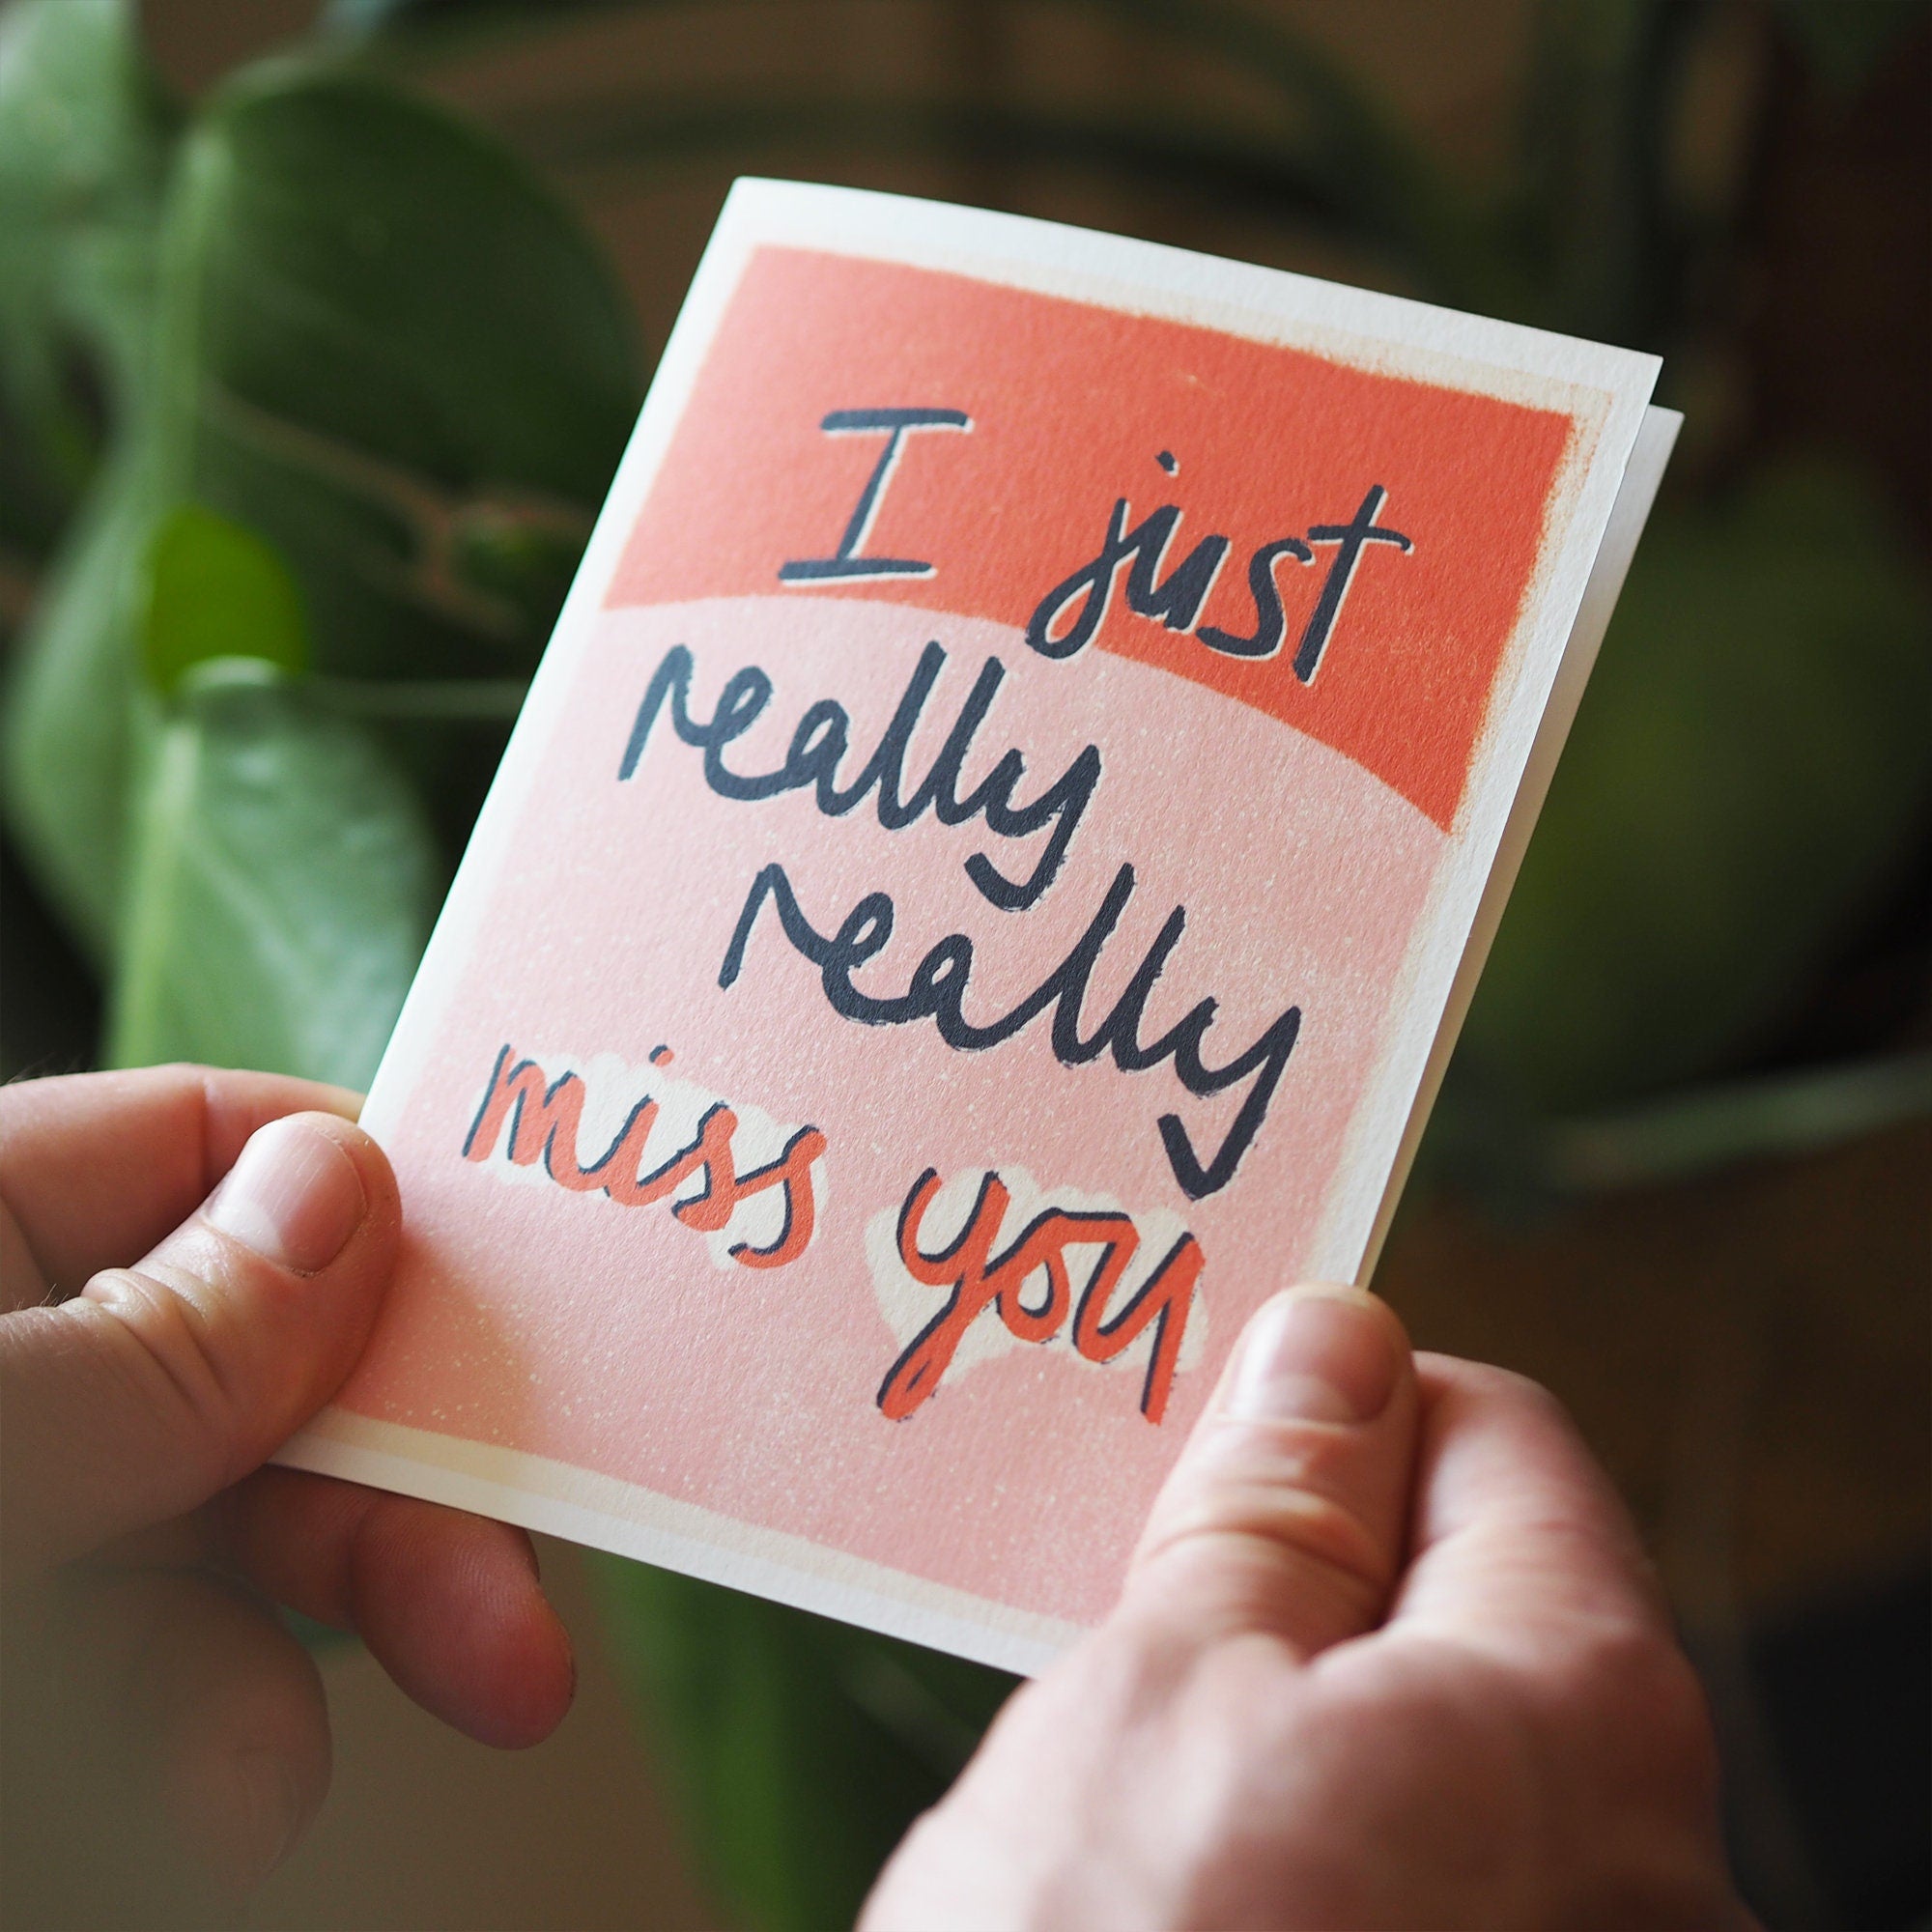 I just
really
really
miss you